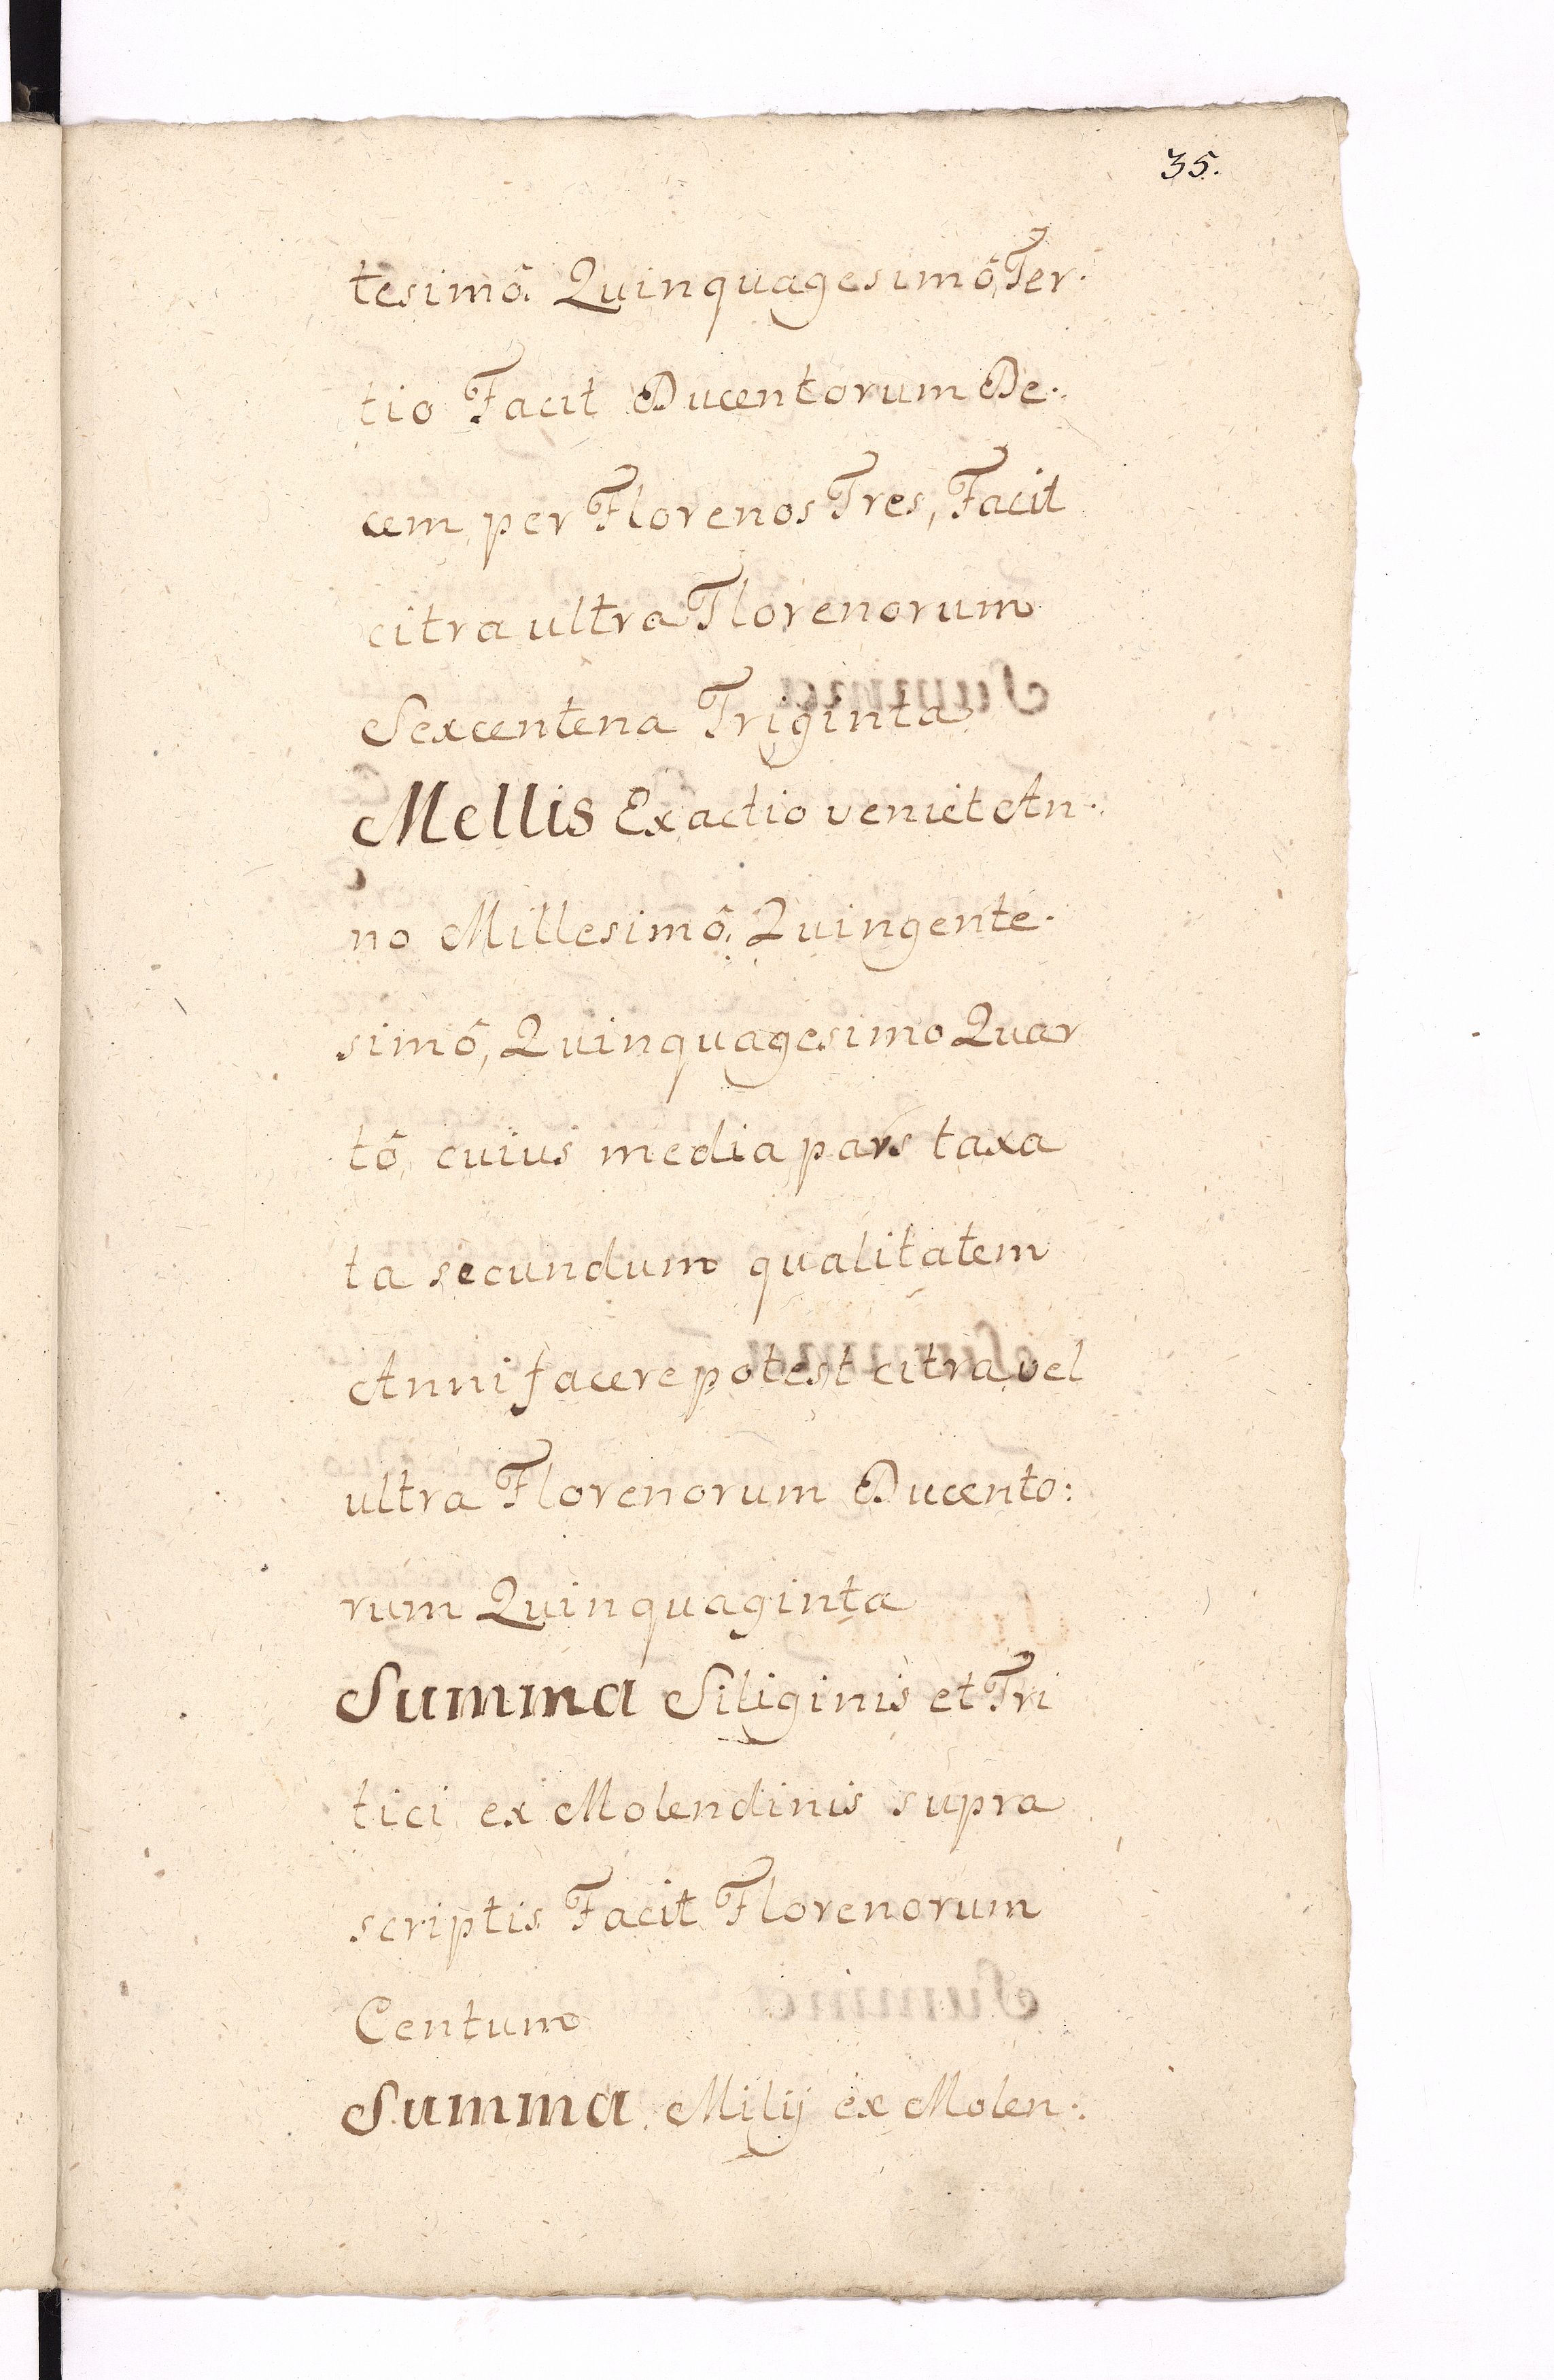 35.
tesimô. Quinquagesimô, Ter.
tio Facit Ducentorum De.
cem, per Florenos Tres, Facit
citra ultra Florenorum
Sexcentena Triginta
Mellis Exactio veniet An.
no Millesimô, Quingente.
simô, Quinquagesimo Quar
tô, cuius media pars taxa
ta secundum qualitatem
Anni facere potest citra vel
ultra Florenorum Ducento:
rum Quinquaginta
Summa Siliginis et Tri
tici ex Molendinis supra
scriptis Facit Florenorum
Centum
Summa Milij ex Molen: